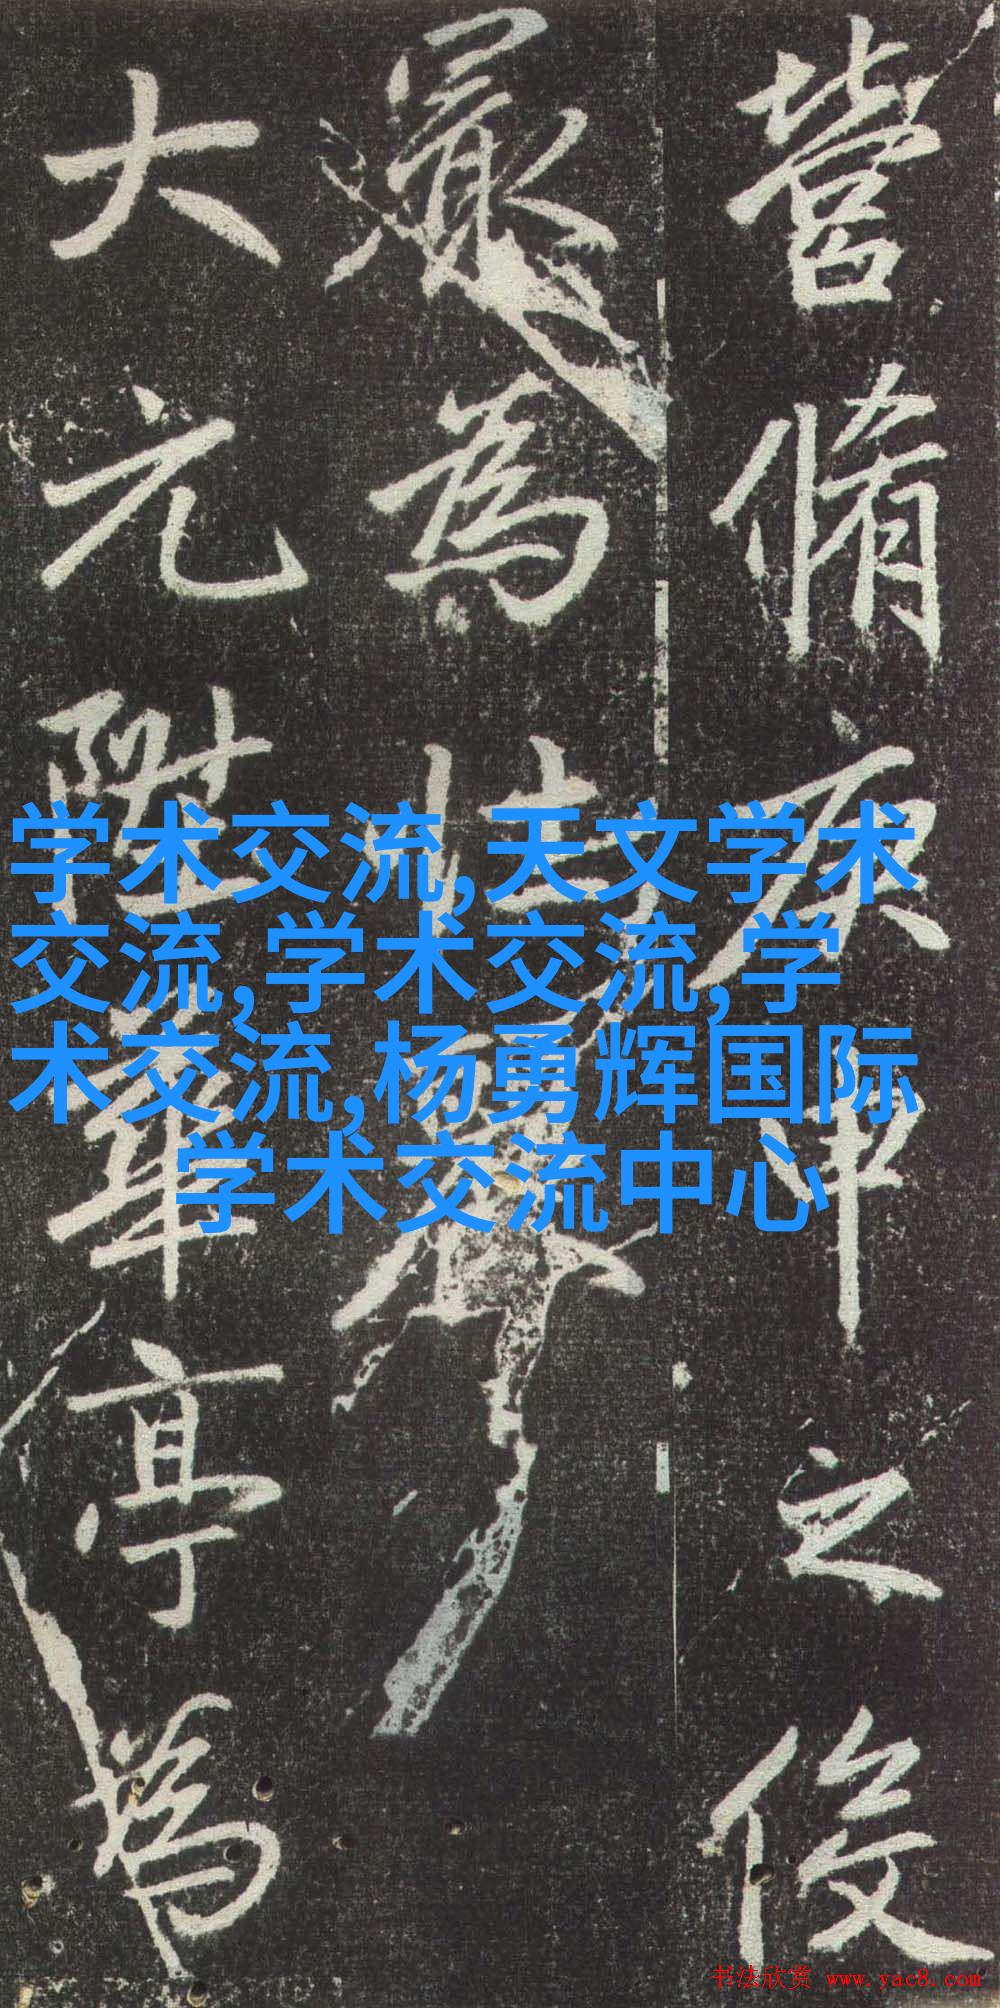 營脩庚申之後
最為壮麗
大元陞華亭為
学术交流,天文学术
交流,学术交流,学
术交流,杨勇辉国际
学术交流中心
书法欣赏 www.yac8.com